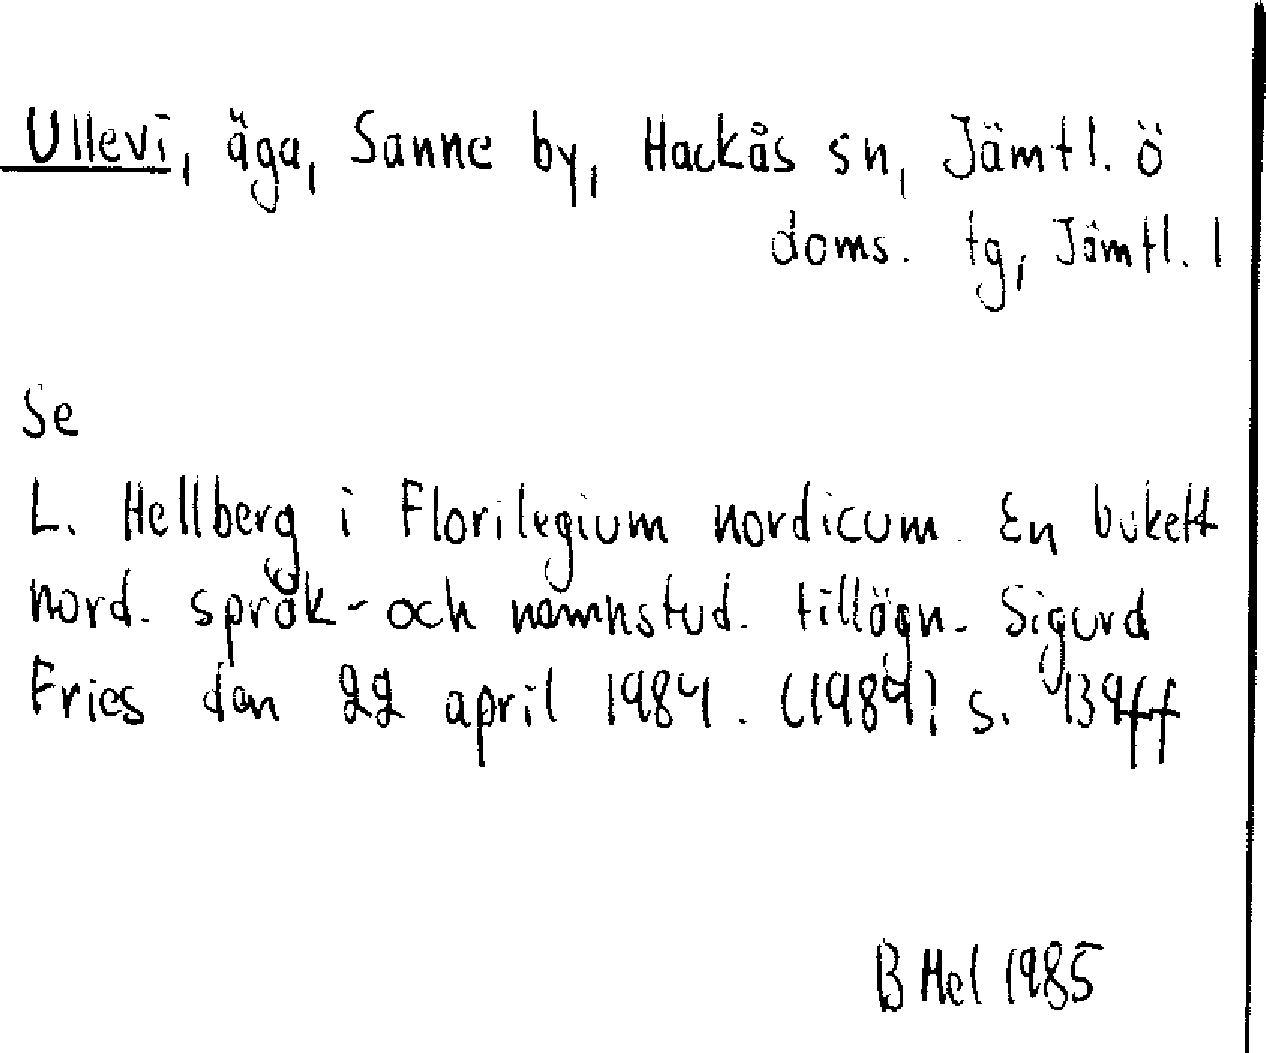 Ullevi, äga, Sanne by, Hackås sn, Jämtl. ö
doms. tg, Jämtl. l
Se
L. Hellberg i Florilegium nordicum. En bukett
nord. språk- och namnstud. tillägn. Sigurd
Fries den 22 april 1984. (1984) s. 139ff
B Hel 1985